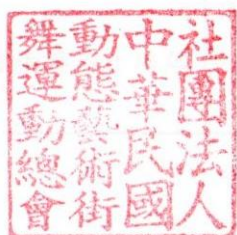 社團法人
中華民國
動態藝術街
舞運動總會